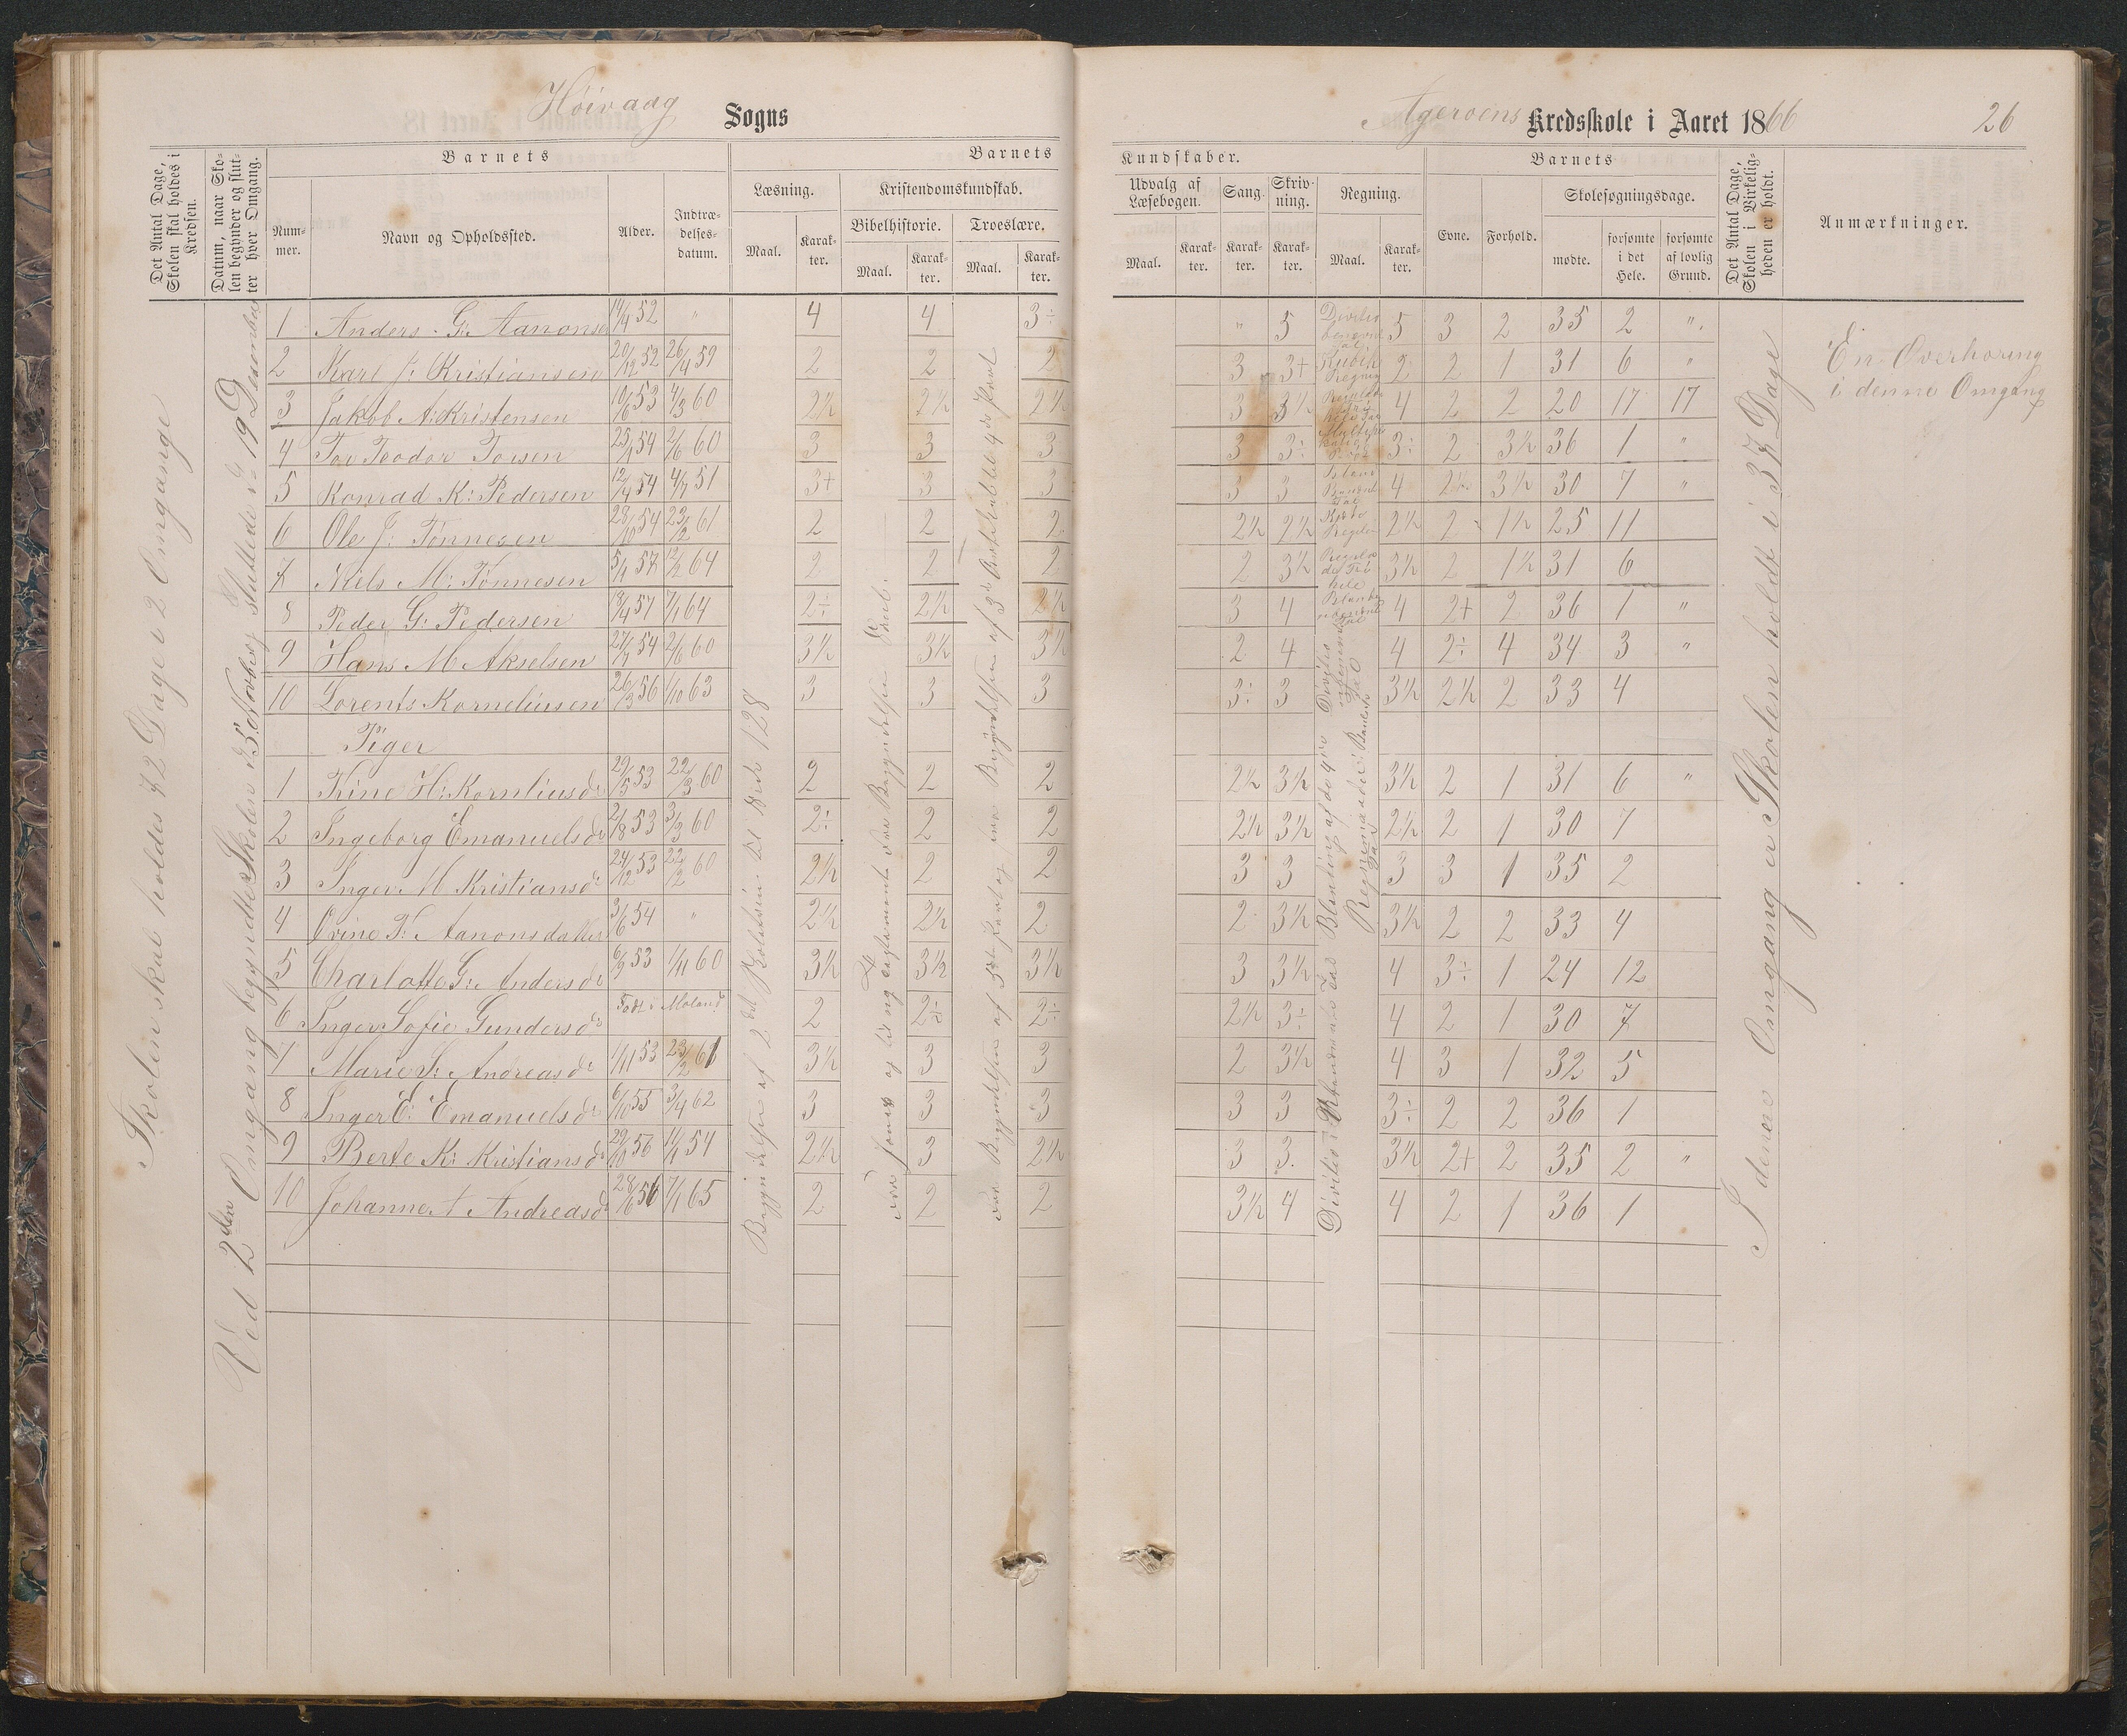 Höivaag Sogns
Barnets
Barnets
Det Antal Dage, Skolen skal holdes i Kredsen.
Datum, naar Skolen begynder og slutter hver Omgang.
Nummer.
Navn og Opholdssted.
Alder.
Indtrædelsesdatum.
Læsning.
Kristendomskundskab.
Bibelhistorie.
Troeslære.
Maal.
Karakter.
Maal.
Karakter.
Maal.
Karakter.
Skolen skal holdes 72 Dage i 2 Omgange
Ved 2den Omgang begyndte Skolen d. 5 Novbr og sluttede d. 19 Desember
1 Anders G: Aanonsen 14/4 52 " 4 4 3÷
2 Karl J: Kristiansen 20/12 52 26/4 59 2 2 2
3 Jakob A: Kristensen 10/6 53 4/3 60 2½ 2½ 2½
4 Tov Teodor Tovsen 25/1 54 2/6 60 3 3 3
5 Konrad K: Pedersen 12/4 54 4/7 51 3+ 3 3
6 Ole J: Tønnesen 28/10 54 23/2 61 2 2 2
7 Niels M: Tønnesen 5/1 57 12/2 64 2 2 2
8 Peder G: Pedersen 18/4 57 7/1 64 2÷ 2½ 2½
9 Hans M Akselsen 27/7 54 2/6 60 3½ 3½ 3½
10 Lorents Korneliusen 26/3 56 1/10 63 3 3 3
Piger
1 Trine H: Kornliusdr 29/5 53 22/3 60 2 2 2
2 Ingeborg Emanuelsdr 2/8 53 3/3 60 2÷ 2 2
3 Inger M Kristiansdr 24/12 53 22/2 60 2½ 2 2
4 Ovine T: Aanonsdatter 3/6 54 " 2½ 2½ 2
5 Charlotte G: Andersdr 6/9 53 1/11 60 3½ 3½ 3½
6 Inger Sofie Gundersdr Født i Moland 2 2÷ 2÷
7 Marie S: Andreasdr 1/11 53 23/2 61 3½ 3 3
8 Inger E: Emanuelsdr 6/10 55 3/4 62 3 3 3
9 Berte K: Kristiansdr 29/10 56 11/1 54 2½ 3 2½
10 Johanne A Andreasdr 28/6 56 7/1 65 2 2 2
Begyndelsen af 2det Skoletrin til Side 128
Fra Jonas og til og fra Begyndelsen
Fra Begyndelsen af 3die Part og fra Begyndelsen af 3die Artikel til 4de Part
Ageroens Kredsskole i Aaret 1866 26
Kundskaber.
Barnets
Udvalg af Læsebogen.
Sang.
Skrivning.
Regning.
Skolesøgningsdage.
Maal.
Karakter.
Karakter.
Karakter.
Maal.
Karakter.
Evne.
Forhold.
mødte.
forsømte i det Hele.
forsømte af lovlig Grund.
Det Antal Dage, Skolen i Virkeligheden er holdt.
Anmærkninger.
" 5 5 3 2 35 2 "
3 3+ 2 2 1 31 6 "
3 3½ 4 2 2 20 17 17
3 3÷ 3÷ 2 3½ 36 1 "
3 3 4 2½ 3½ 30 7 "
2½ 2½ 2½ 2 1½ 25 11
2 3½ 3½ 2 1½ 31 6
3 4 4 2+ 2 36 1 "
2 4 4 2÷ 4 34 3 "
3÷ 3 3½ 2½ 2 33 4
2½ 3½ 3½ 2 1 31 6 "
2½ 3½ 2½ 2 1 30 7
3 3 3 3 1 35 2
2 3½ 3½ 2 2 33 4
3 3½ 4 3÷ 1 24 12
2½ 3÷ 4 2 1 30 7
2 3½ 4 3 1 32 5
3 3 3÷ 2 2 36 1
3 3 3½ 2+ 2 35 2 "
3½ 4 4 2 1 36 1
I denne Omgang er Skolen holdt i 37 Dage
En Overhøring
i denne Omgang